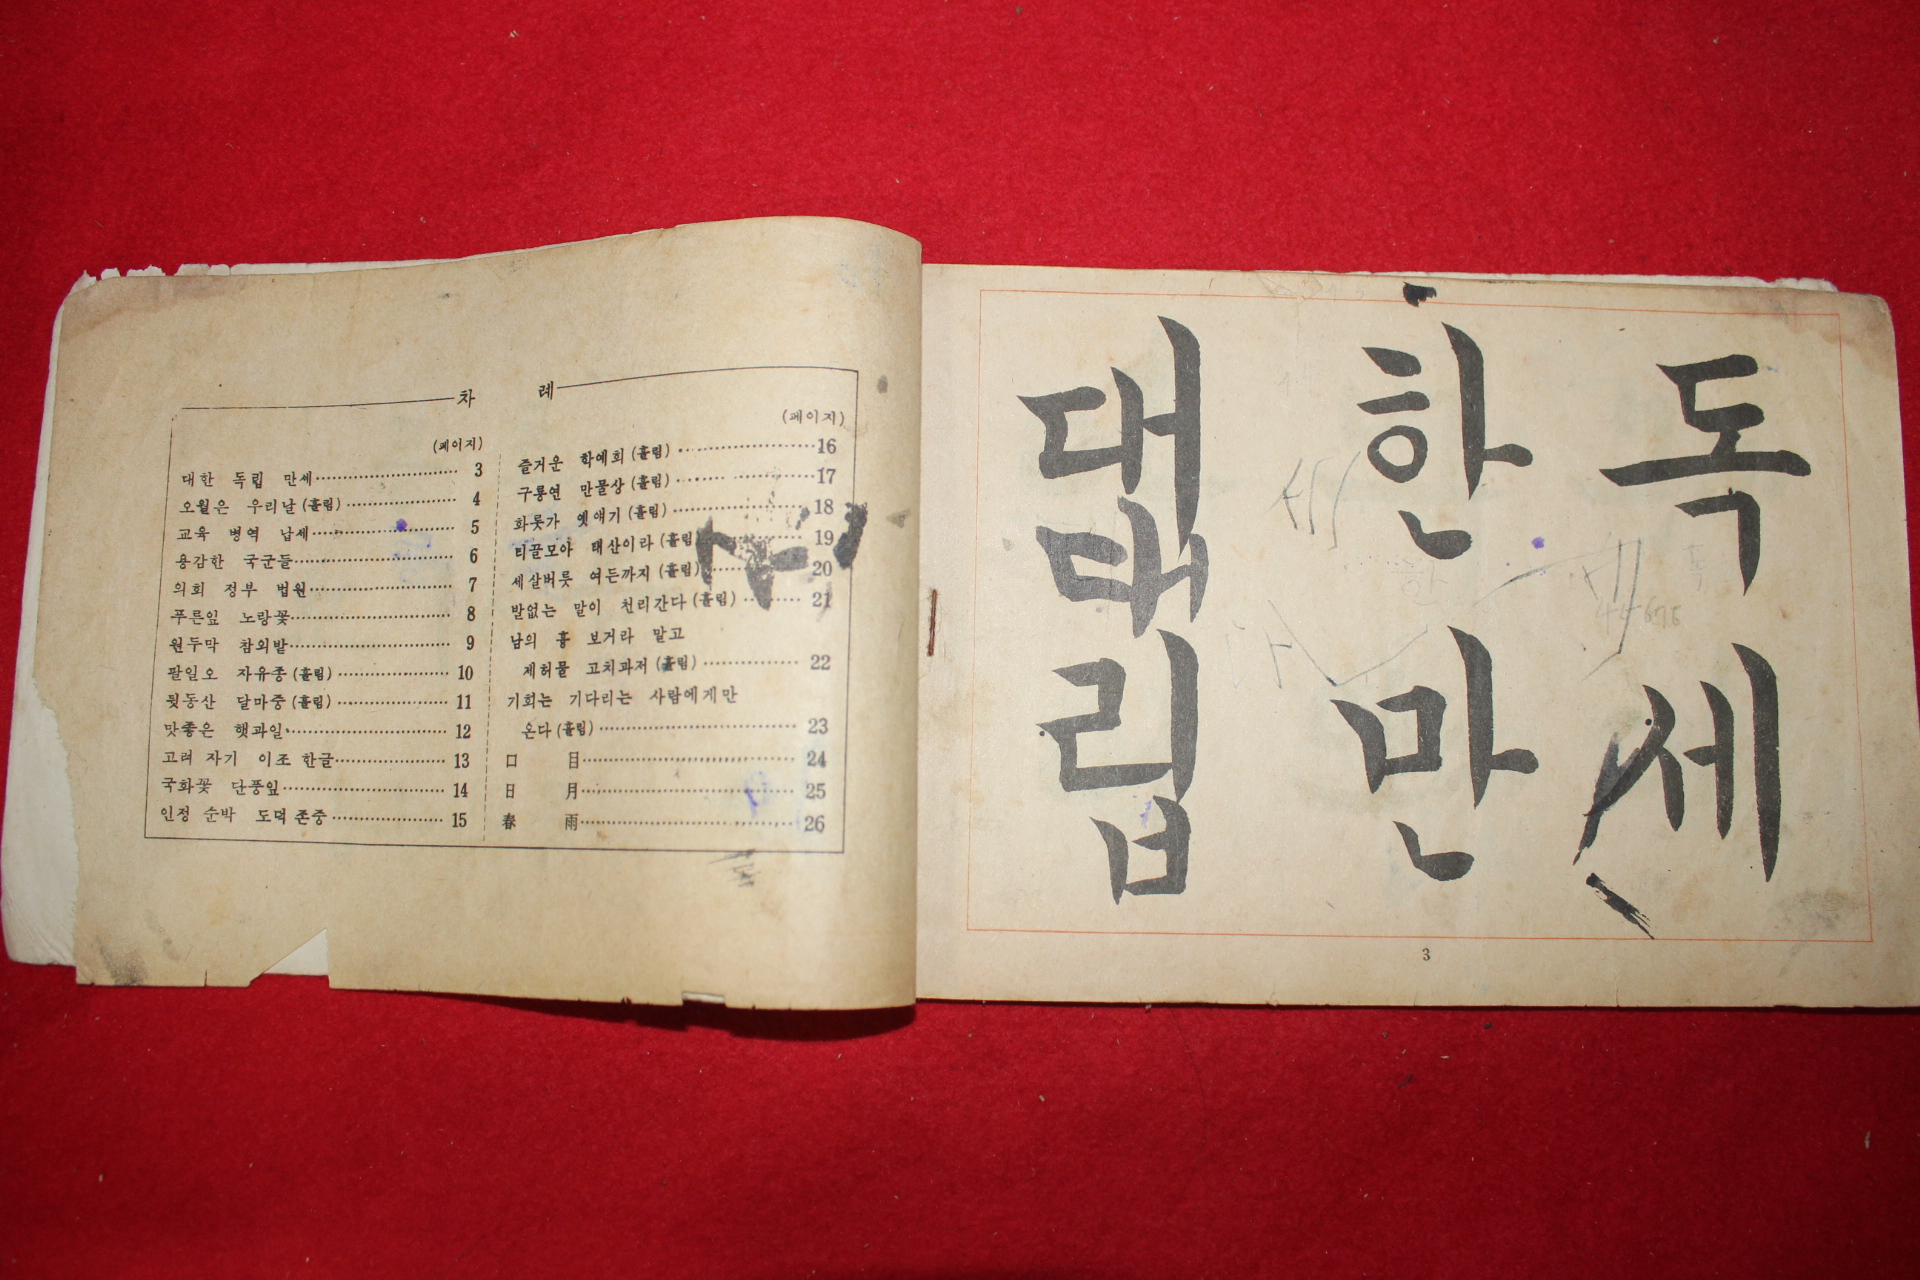 차 례
(페이지)
대한 독립 만세 3
오월은 우리날 (흘림) 4
교육 병역 납세 5
용감한 국군들 6
의회 정부 법원 7
푸른잎 노랑꽃 8
원두막 참외밭 9
팔일오 자유종 (흘림) 10
뒷동산 달마중 (흘림) 11
맛좋은 햇과일 12
고려 자기 이조 한글 13
국화꽃 단풍잎 14
인정 순박 도덕 존중 15
(페이지)
즐거운 학예회 (흘림) 16
구룡연 만물상 (흘림) 17
화롯가 옛얘기 (흘림) 18
티끌모아 태산이라 (흘림) 19
세살버릇 여든까지 (흘림) 20
발없는 말이 천리간다 (흘림) 21
남의 흉 보거라 말고
제허물 고치과저 (흘림) 22
기회는 기다리는 사람에게만
온다 (흘림) 23
口 目 24
日 月 25
春 雨 26
대 한 독
대
립 만 세
3